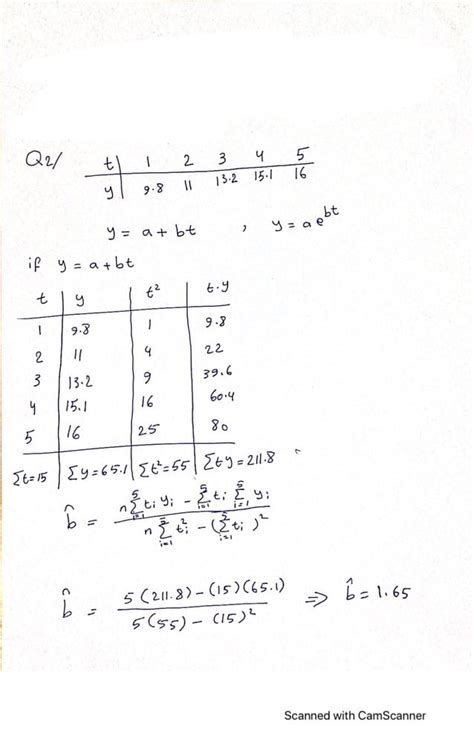 Q2/ t | 1 2 3 4 5
y | 9.8 11 13.2 15.1 16
y = a + bt , y = a e^bt
if y = a + bt
t | y | t² | t.y
1 | 9.8 | 1 | 9.8
2 | 11 | 4 | 22
3 | 13.2 | 9 | 39.6
4 | 15.1 | 16 | 60.4
5 | 16 | 25 | 80
Σt=15 | Σy=65.1 | Σt²=55 | Σty=211.8
b̂ = (n Σ_{i=1}^{5} tᵢ yᵢ - Σ_{i=1}^{5} tᵢ Σ_{i=1}^{5} yᵢ) / (n Σ_{i=1}^{5} tᵢ² - (Σ_{i=1}^{5} tᵢ)²)
b̂ = (5(211.8) - (15)(65.1)) / (5(55) - (15)²) ⇒ b̂ = 1.65
Scanned with CamScanner